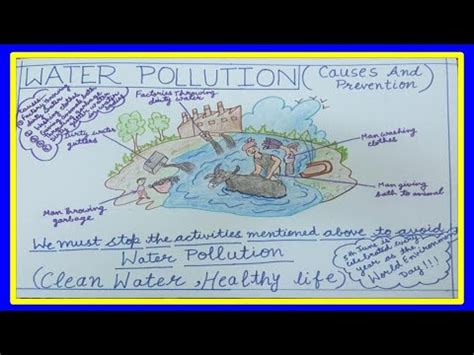 WATER POLLUTION (Causes And
Prevention)
Causes:-
Factories Throwing
dirty water
Dirty water
gutters
Man washing
clothes
Man giving
bath to animal
Man Throwing
garbage
We must stop the activities mentioned above to avoid
Water Pollution
(Clean Water, Healthy life)
5th June is
celebrated every
year as the
World Environment
Day!!!